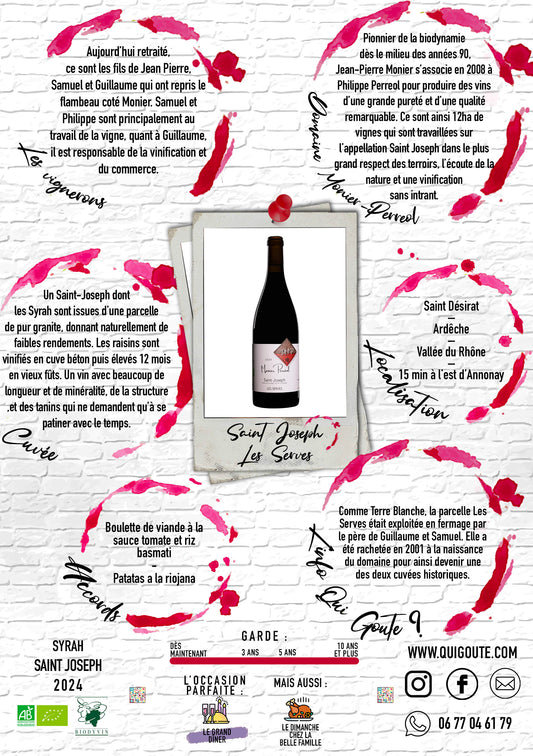 Aujourd'hui retraité,
ce sont les fils de Jean Pierre,
Samuel et Guillaume qui ont repris le
flambeau coté Monier. Samuel et
Philippe sont principalement au
travail de la vigne, quant à Guillaume,
il est responsable de la vinification et
du commerce.
Les vignerons
Pionnier de la biodynamie
dès le milieu des années 90,
Jean-Pierre Monier s'associe en 2008 à
Philippe Perreol pour produire des vins
d'une grande pureté et d'une qualité
remarquable. Ce sont ainsi 12ha de
vignes qui sont travaillées sur
l'appellation Saint Joseph dans le plus
grand respect des terroirs, l'écoute de la
nature et une vinification
sans intrant.
Domaine Monier-Perreol
Un Saint-Joseph dont
les Syrah sont issues d'une parcelle
de pur granite, donnant naturellement de
faibles rendements. Les raisins sont
vinifiés en cuve béton puis élevés 12 mois
en vieux fûts. Un vin avec beaucoup de
longueur et de minéralité, de la structure
,et des tanins qui ne demandent qu'à se
patiner avec le temps.
Cuvée
Saint Joseph
Les Serves
Saint Désirat
—
Ardêche
—
Vallée du Rhône
—
15 min à l'est d'Annonay
Localisation
Boulette de viande à la
sauce tomate et riz
basmati
-
Patatas a la riojana
Accords
Comme Terre Blanche, la parcelle Les
Serves était exploitée en fermage par
le père de Guillaume et Samuel. Elle a
été rachetée en 2001 à la naissance
du domaine pour ainsi devenir une
des deux cuvées historiques.
L'info Qui Goute ?
SYRAH
SAINT JOSEPH
2024
AB
BIODYVIN
GARDE :
DÈS MAINTENANT
3 ANS
5 ANS
10 ANS ET PLUS
L'OCCASION
PARFAITE :
LE GRAND
DINER
MAIS AUSSI :
LE DIMANCHE
CHEZ LA
BELLE FAMILLE
WWW.QUIGOUTE.COM
06 77 04 61 79